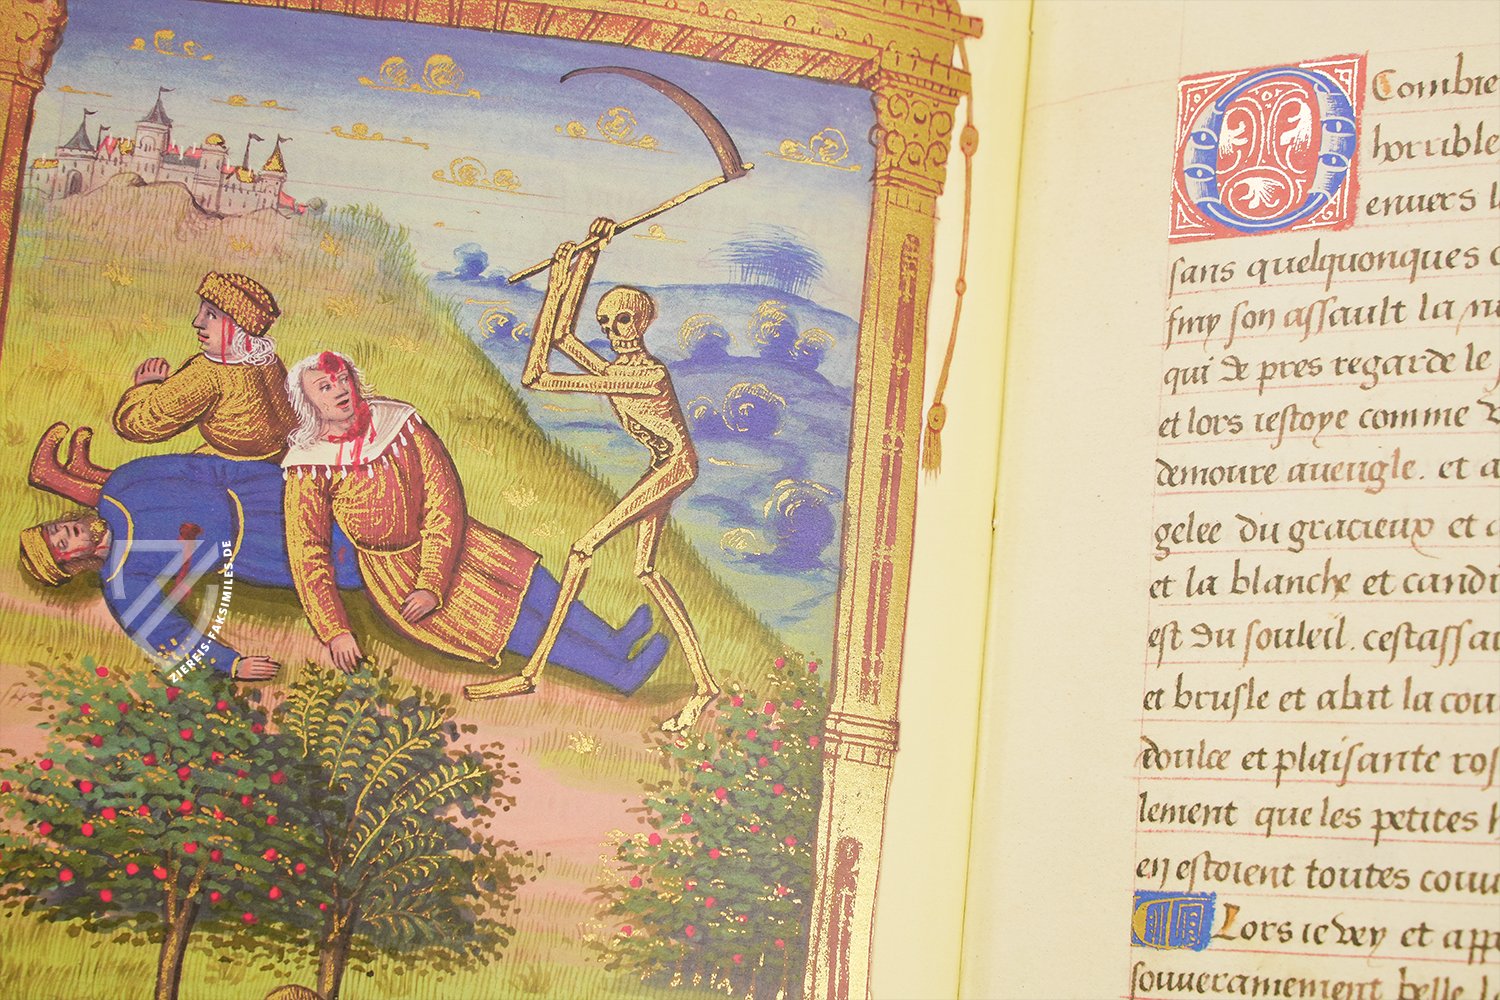 ZIEREIS-FAKSIMILES.DE
O Combie
horrible
envers l
sans quelquonques c
finy son assault la
qui de pres regarde le
et lors iestoye comme
demoure aveugle. et a
gelee du gracieux et a
et la blanche et candi
est du souleil. cestassau
et brusle et abat la cou
doulce et plaisante ros
lement que les petites h
en estoient toutes couv
Lors ie vey et app
souverainement belle